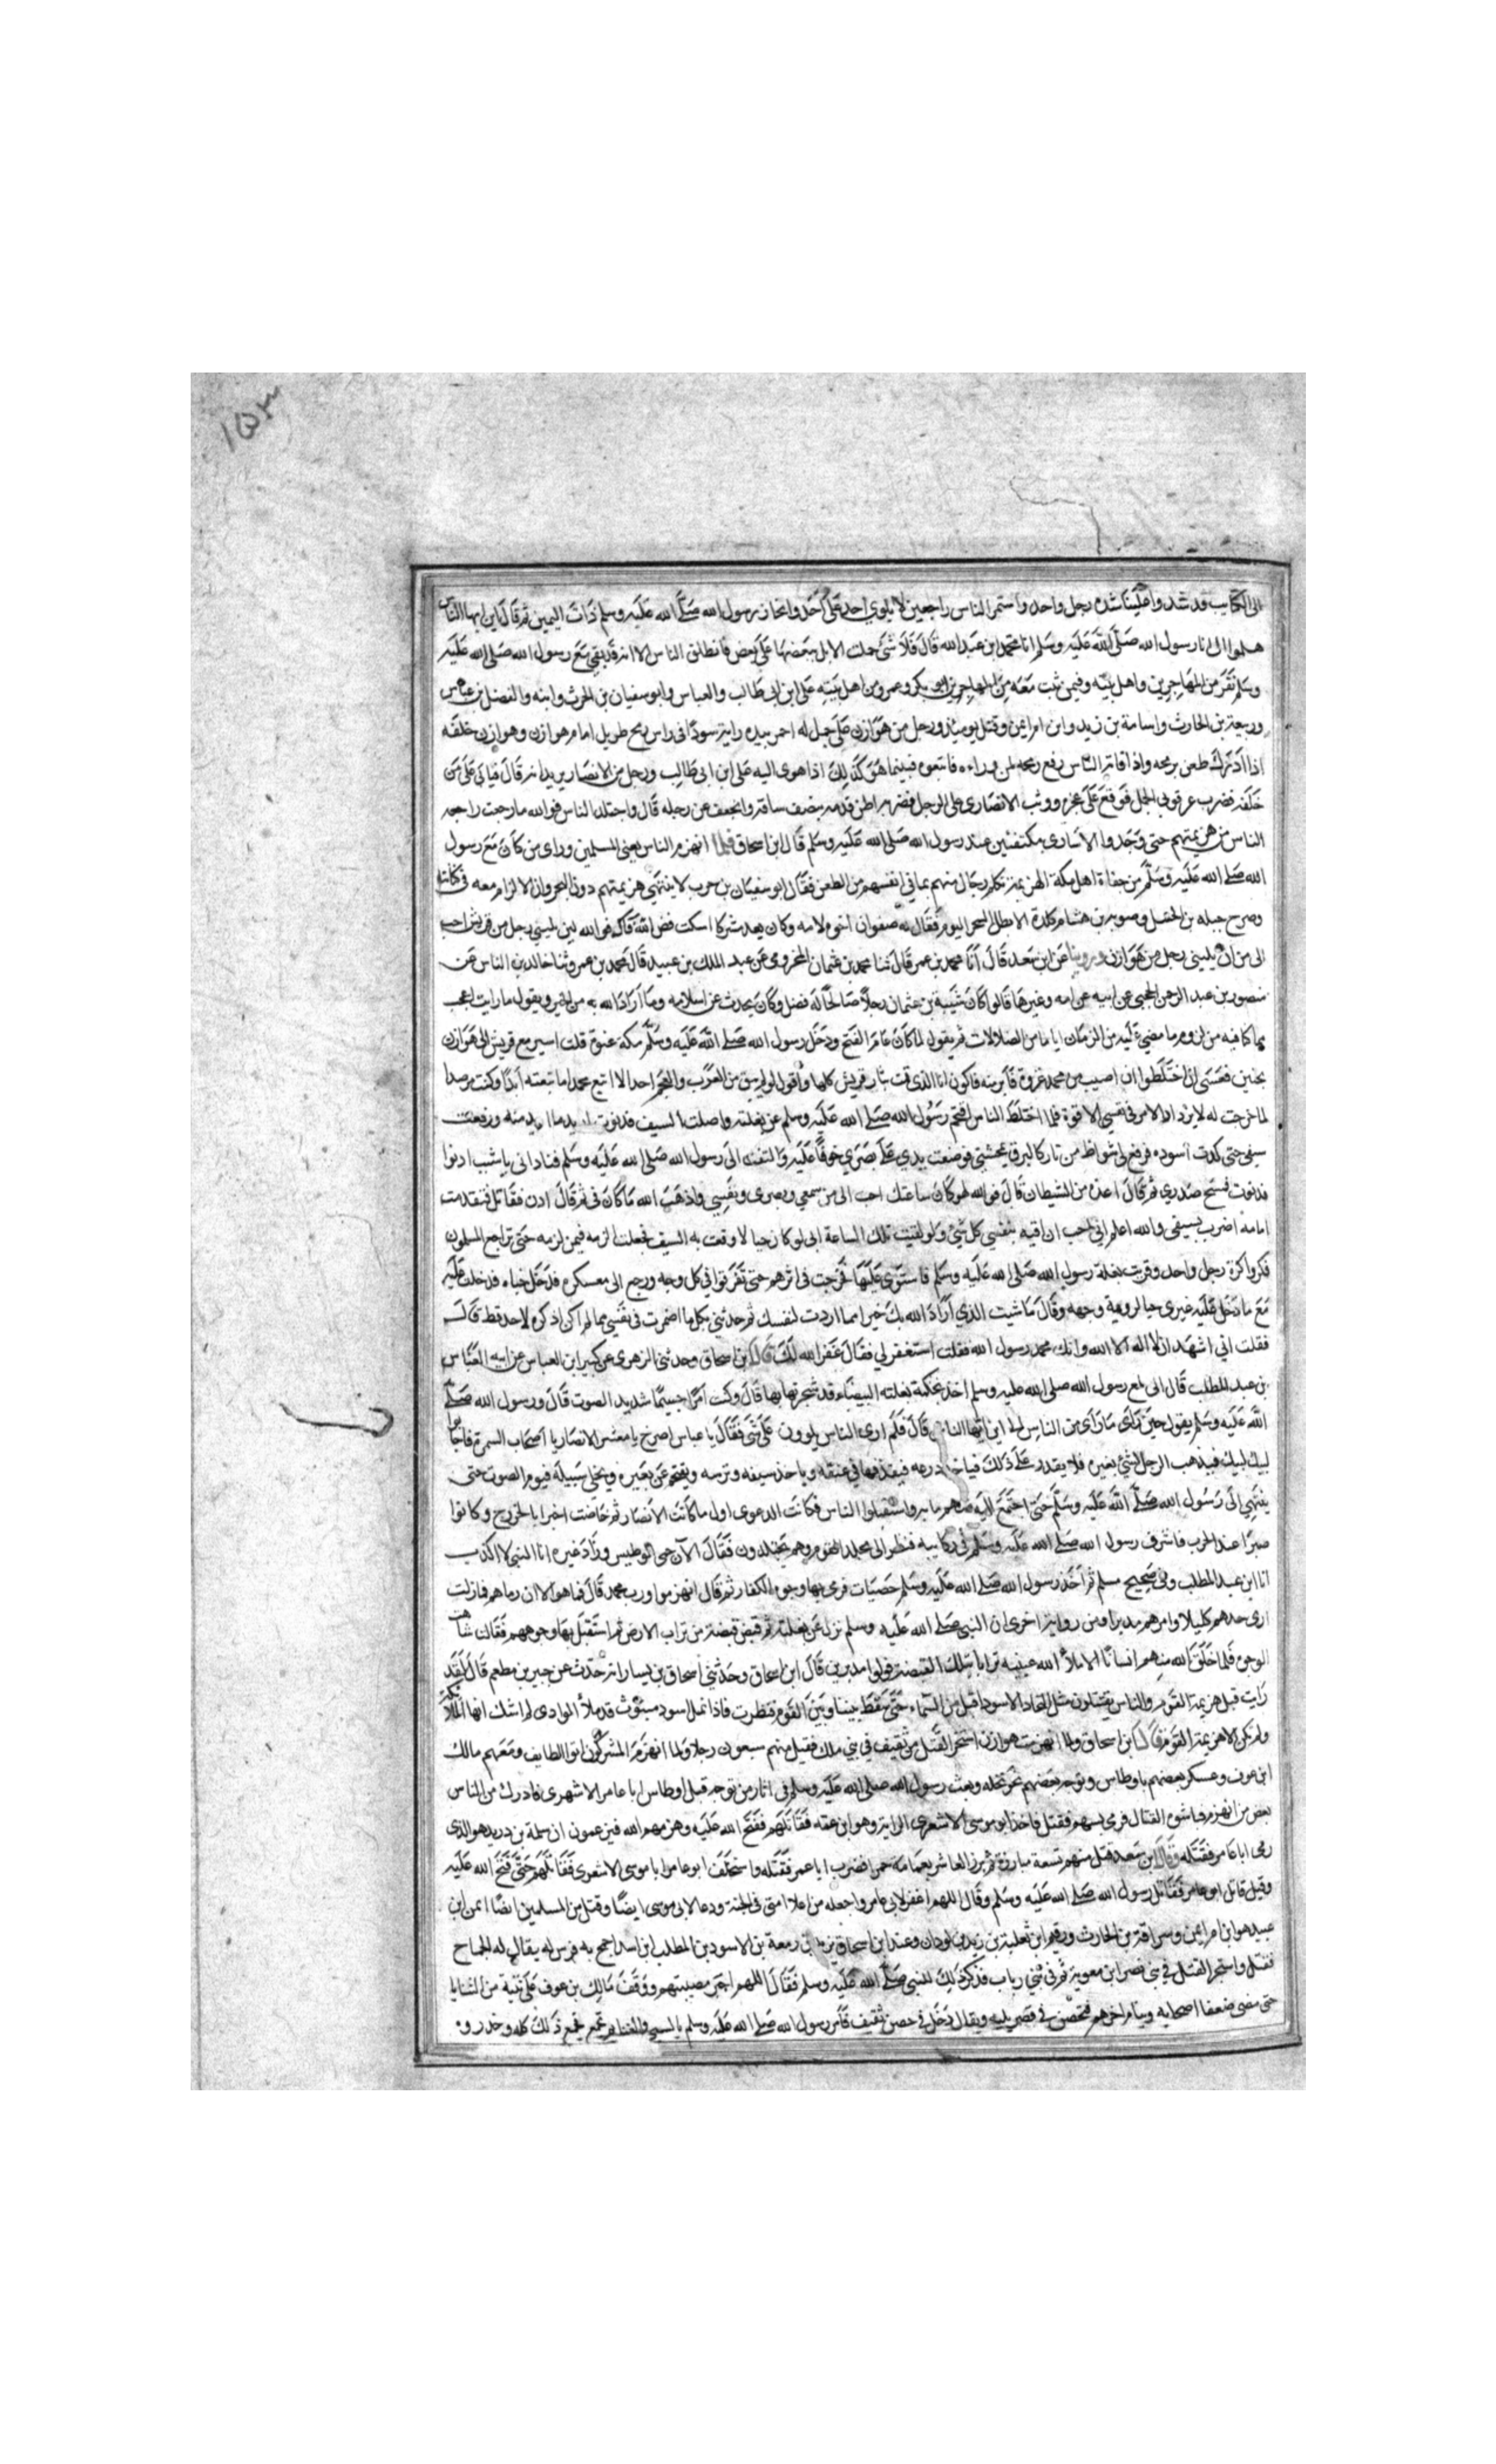 ١٥٣
الى الكتايب قد شدوا علينا شدة رجل واحد واستمر الناس راجعين لا يلوي احد على احد وانحاز رسول الله صلى الله عليه وسلم ذات اليمين ثم قال اين ايها الناس
هلموا الى انا رسول الله صلى الله عليه وسلم انا محمد ابن عبد الله قال فلا شئ حملت الابل بعضها على بعض فانطلق الناس الا انه قد بقي مع رسول الله صلى الله عليه
وسلم نفر من المهاجرين واهل بيته وفيمن ثبت معه من المهاجرين ابو بكر وعمر ومن اهل بيته على ابن ابى طالب والعباس وابو سفيان بن الحرث وابنه والفضل بن عباس
وربيعة بن الحارث واسامة بن زيد وابن ام ايمن وقتل يوميذ ورجل من هوازن على جمل له احمر بيده راية سودا فى راس رمح طويل امام هوازن وهوازن خلفه
اذا ادرك طعن برمحه واذا فاته الناس رفع رمحه لمن وراءه فاتبعوه فبينما هو كذلك اذا هوى اليه على ابن ابى طالب ورجل من الانصار يريدانه قال فياتى على من
خلفه فضرب عرقوبى الجمل فوقع على عجزه ووثب الانصارى على الرجل فضربه اطن قدمه بنصف ساقه وانجعف عن رحله قال واجتلد الناس فوالله ما رجعت راجعه
الناس من هزيمتهم حتى وجدوا الاسارى مكتفين عند رسول الله صلى الله عليه وسلم قال ابن اسحاق فلما انهزم الناس يعنى المسلمين وراى من كان مع رسول
الله صلى الله عليه وسلم من جفاة اهل مكة الهزيمة تكلم رجال منهم بما فى انفسهم من الطعن فقال ابو سفيان بن حرب لا ينتهي هزيمتهم دون البحر وان الازلام معه فى كنانته
وصرح جبله بن الحنبل وصوبه بن هشام كلدة الا بطل السحر اليوم فقال له صفوان اخوه لامه وكان بعد مشركا اسكت فض الله فاك فوالله لين يليني رجل من قريش احب
الى من ان يليني رجل من هوازن وروينا عن ابن سعد قال انا محمد بن عمر قال ثنا محمد بن عثمان المخزومى عن عبد الملك بن عبيد قال محمد بن عمر وثنا خالد بن الناس عن
منصور بن عبد الرحمن الحجبى عن ابيه عن امه وغيرها قالوا كان شيبة بن عثمان رجلا صالحا له فضل وكان يحدث عن اسلامه وما اراد الله به من الخير ويقول ما رايت اعجب
مما كنا فيه من لزوم ما مضى عليه من الزمان ايا ما من الضلالات ثم يقول لما كان عام الفتح ودخل رسول الله صلى الله عليه وسلم مكة عنوة قلت اسير مع قريش الى هوازن
بحنين فعسى ان اختلطوا ان اصيب من محمد غزوة فاكون انا الذى قمت بثار قريش كلها واقول لو لم يبق من العرب والعجم احد الا اتبع محمدا ما تبعته ابدا وكنت مرصدا
لما خرجت له لا يزداد الامر فى نفسي الا قوة فلما اختلط الناس اقتحم رسول الله صلى الله عليه وسلم عن بغلته واصلت السيف فدنوت اريد ما اريد منه ورفعت
سيفى حتى كدت اسوده فرفع لى شواظ من نار كالبرق يمحشنى فوضعت يدي على بصري خوفا عليه والتفت الى رسول الله صلى الله عليه وسلم فنادانى يا شيب ادنوا
فدنوت فمسح صدري ثم قال اعذه من الشيطان قال فوالله لهو كان ساعتئذ احب الى من سمعي وبصرى ونفسي واذهب الله ما كان فى ثم قال ادن فقاتل فتقدمت
امامه اضرب بسيفى والله اعلم انى احب ان اقيه بنفسي كل شئ ولو لقيت تلك الساعة ابى لو كان حيا لاوقعت به السيف فجعلت الزمه فيمن لزمه حتى تراجع المسلمون
فكروا كرة رجل واحد وقربت بغلة رسول الله صلى الله عليه وسلم فاستوى عليها فخرجت فى اثرهم حتى تفرقوا فى كل وجه ورجع الى معسكره فدخل خباه فدخلت عليه
مع ما دخل عليه غيرى حبا لروية وجهه وقال ما شيت الذي اراد الله بك خير مما اردت لنفسك ثم حدثني بكل ما اضمرت فى نفسي مما لم اكن اذكره لاحد قط قال
فقلت اني اشهد ان لا اله الا الله وانك محمد رسول الله فقلت استغفر لي فقال غفر الله لك قال ابن اسحاق وحدثنى الزهرى عن كبير ابن العباس عن ابيه العباس
بن عبد المطلب قال انى لمع رسول الله صلى الله عليه وسلم اخذ بحكمة بغلته البيضاء قد شجرتها بها قال وكنت امرا جسيما شديد الصوت قال ورسول الله صلى
الله عليه وسلم يقول حين راى ما راى من الناس الى اين ايها الناس قال فلم ارى الناس يلوون على شى فقال يا عباس اصرخ يا معشر الانصار يا اصحاب السمرة فاجابوا
لبيك لبيك فيذهب الرجل لينثنى بعيره فلا يقدر على ذلك فياخذ درعه فيقذفها فى عنقه وياخذ سيفه وترسه ويقتحم عن بعيره ويخلى سبيله فيوم الصوت حتى
ينتهي الى رسول الله صلى الله عليه وسلم حتى اجتمع اليه منهم مايه واستقبلوا الناس فكانت الدعوى اول ما كانت الانصار ثم خاضت اخيرا يا للخزرج وكانوا
صبرا عند الحرب فاشرف رسول الله صلى الله عليه وسلم فى ركايبه فنظر الى مجتلد القوم وهم يجتلدون فقال الآن حمى الوطيس وزاد غيره انا النبى لا كذب
انا ابن عبد المطلب وفى صحيح مسلم ثم اخذ رسول الله صلى الله عليه وسلم حصيات فرمى بها وجوه الكفار ثم قال انهزموا ورب محمد قال فما هو الا ان رماهم فما زلت
ارى حدهم كليلا وامرهم مدبرا ومن رواية اخرى ان النبى صلى الله عليه وسلم نزل عن بغلته ثم قبض قبضة من تراب الارض ثم استقبل بها وجوههم فقال شاهت
الوجوه فما خلق الله منهم انسانا الا ملأ الله عينيه ترابا بتلك القبضة فولوا مدبرين قال ابن اسحاق وحدثني اسحاق بن يسار انه حدث عن جبير بن مطعم قال لقد
رايت قبل هزيمة القوم والناس يقتتلون مثل البجاد الاسود اقبل من السماء حتى سقط بيننا وبين القوم فنظرت فاذا نمل اسود مبثوث قد ملأ الوادى لم اشك انها الملائكة
ولم يكن الا هزيمة القوم قال ابن اسحاق ولما انهزمت هوازن استحر القتل من ثقيف في بني ملك فقيل منهم سبعون رجلا ولما انهزم المشركون اتوا الطايف ومعهم مالك
ابن عوف وعسكر بعضهم باوطاس وتوجه بعضهم نحو نخله وبعث رسول الله صلى الله عليه وسلم فى اثار من توجه قبل اوطاس ابا عامر الاشعرى فادرك من الناس
بعض من انهزم فناشوه القتال فرمى بسهم فقتل فاخذ ابو موسى الاشعرى الراية وهو ابن عمه فقاتلهم ففتح الله عليه وهزمهم الله فيزعمون ان سلمة بن دريد هو الذى
رمى ابا عامر فقتله وقال ابن سعد قتل منهم تسعة مبارزة ثم برز العاشر بعمامة حمرا فضرب ابا عمر فقتله واستخلف ابو عامر ابا موسى الاشعرى فقاتلهم حتى فتح الله عليه
وقيل قاتل ابو عامر فقاتل رسول الله صلى الله عليه وسلم وقال اللهم اغفر لابى عامر واجعله من اعلا امتى فى الجنة ودعا لابى موسى ايضا وقتل من المسلمين ايضا ايمن ابن
عبيد هو ابن ام ايمن وسراقة بن الحارث ورقيم ابن ثعلبة بن زيد بن لوذان وعند ابن اسحاق يزيد بن ربيعة بن الاسود بن المطلب ابن اسد جمح به فرس له يقال له الجماح
فقتل واستحر القتل في بنى نصر ابن معوية ثم فى بني رياب فذكر ذلك للنبى صلى الله عليه وسلم فقال اللهم اجبر مصيبتهم ووقف مالك بن عوف على ثنية من الثنايا
حتى مضى ضعفا اصحابه وتتام اخرهم فتحصن فى قصر بليه ويقال دخل فى حصن ثقيف فامر رسول الله صلى الله عليه وسلم بالسبى والغنايم تجمع فجمع ذلك كله وحدروه